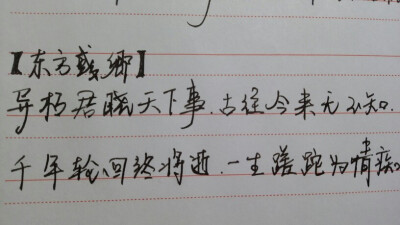 【东方彧卿】
异朽君天下事.古往今来无不知.
千年轮回终将逝.一生蹉跎为情痴